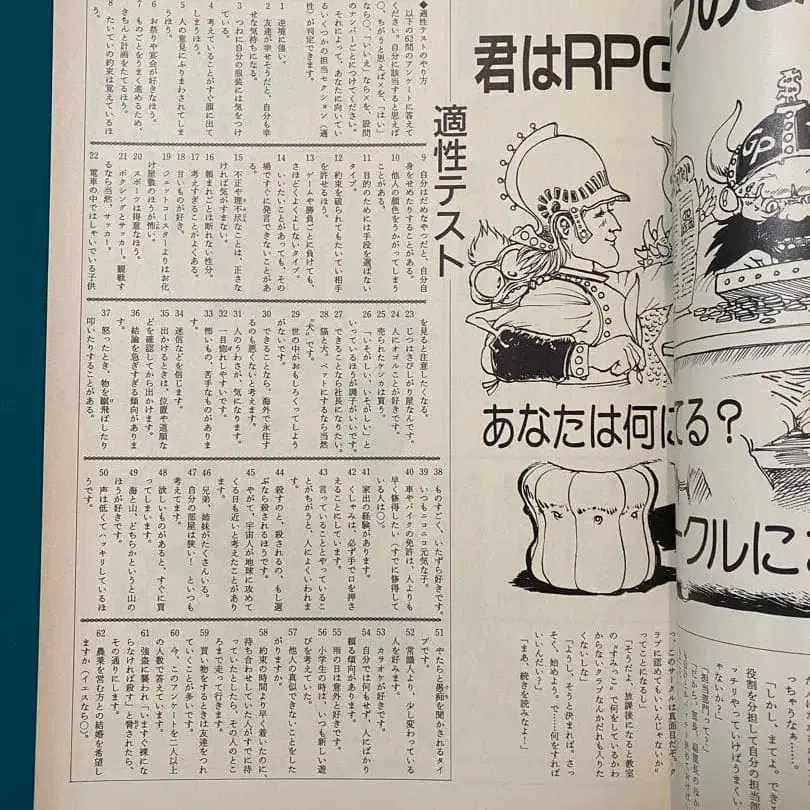 君はRPG
適性テスト
あなたは何にてる？
ークルにこ
GP
◆適性テストのやり方
以下の62問のアンケートに答えて
ください。自分に該当すると思えば
○、ちがうと思えば×を、「はい」
なら○、「いいえ」なら×を、設問
のナンバーごとにつけてください。
それによって、あなたに向いてい
るいくつかの担当セクション（適
性）が判定できます。
1 逆境に強い。
2 友達が幸せそうだと、自分も幸
せな気持ちになる。
3 つねに自分の服装には気をつけ
ているほう。
4 考えていることがすぐ顔に出て
しまうほう。
5 人の意見にふりまわされてしま
うほう。
6 お祭りや宴会が好きなほう。
7 ものごとをうまく進めるため、
きちんと計画をたてるほう。
8 たいていの約束は覚えているほ
う。
9 自分はだめなやつだと、自分自
身をせめたりすることがある。
10 他人の顔色をうかがってしまう
ことがある。
11 目的のためには手段を選ばない
タイプ。
12 約束を破られてもたいてい相手
を許せるほう。
13 ゲームや勝負ごとに負けても、
さほどくよくよしないタイプ。
14 いいたいことがあっても、その
場ですぐに発言できないことがあ
る。
15 不正や理不尽なことは、正さな
ければ気がすまない。
16 頼まれごとは断れない性分。
17 考えすぎることがよくある。
18 甘いものが好き。
19 ジェットコースターよりはお化
け屋敷のほうが怖い。
20 スポーツは得意なほう。
21 ボクシングとサッカー。観戦す
るなら当然、サッカー。
22 電車の中ではしゃいでいる子供
を見ると注意したくなる。
23 じつはさびしがり屋なんです。
24 人にオゴルことが好きです。
25 売られたケンカは買う。
26 「いそがしい、いそがしい」と
いっているほうが調子がいいです。
27 できることなら社長になりたい。
28 猫と犬。ペットにするなら当然
“犬”です。
29 世の中がおもしろくってしょう
がないです。
30 できることなら、海外で永住す
るのも悪くないと考えます。
31 人のうわさが、気になります。
32 一目惚れしやすいです。
33 怖いもの、苦手なものがありま
す。
34 迷信などを信じます。
35 出かけるときは、位置や道順な
どを確認してから出かけます。
36 結論を急ぎすぎる傾向がありま
す。
37 怒ったとき、物を蹴飛ばしたり
叩いたりすることがある。
38 ものすごく、いたずら好きです。
39 いつもニコニコ元気な子。
40 車やバイクの免許は、人よりも
早く修得したい（すでに修得して
いる人は○）。
41 家出の経験があります。
42 くしゃみは、必ず手で口を押さ
えることにしています。
43 言っていることとやっているこ
とがちがうと、人によくいわれま
す。
44 殺すのと、殺されるの、もし選
ぶなら殺されるほうです。
45 やがて、宇宙人が地球に攻めて
くる日も近いと考えたことがあり
ます。
46 兄弟、姉妹がたくさんいる。
47 自分の部屋は狭い！ といつも
考えてます。
48 欲しいものがあると、すぐに買
ってしまいます。
49 海と山、どちらかというと山の
ほうが好きです。
50 声は低くてハッキリしているほ
うです。
51 やたらと愚痴を聞かされるタイ
プです。
52 常識人より、少し変わっている
人を好みます。
53 カラオケが好きです。
54 自分では何もせず、人にばかり
頼る傾向があります。
55 雨の日は意外と好きです。
56 小学生の時は、いつも新しい遊
びを考えていた。
57 他人の真似できないことをした
がりますか。
58 約束の時間より早く着いたのに、
待ち合わせしていた人がすでに待
っていたとしたら、その人のとこ
ろまで走って行きます。
59 買い物をするときは友達をつれ
ていくことが多いです。
60 今、このアンケートを二人以上
の人数で答えています。
61 強盗に襲われ「いますぐ裸にな
らなければ殺す」と脅されたら、
その通りにします。
62 農業を営む方との結婚を希望し
ますか（イエスなら○）。
っ、このサークルは真面目だぞ。ク
ラブに認めてもいいんじゃないか」
ってことになるし」
「そうだよ、放課後になると教室
の“すみっこ”で何をしているかわ
からないクラブなんかだれも入りた
くないしな」
「ようし、そうと決まれば、さっ
そく、始めよう。で……何をすれば
いいんだい？」
「まあ、続きを読みなよ！」
っちゃうなぁ……。
「しかし、まてよ。でき
役割を分担して自分の担当部
ッチリやっていけばうまく
ゃないか？」
「担当部門って？」